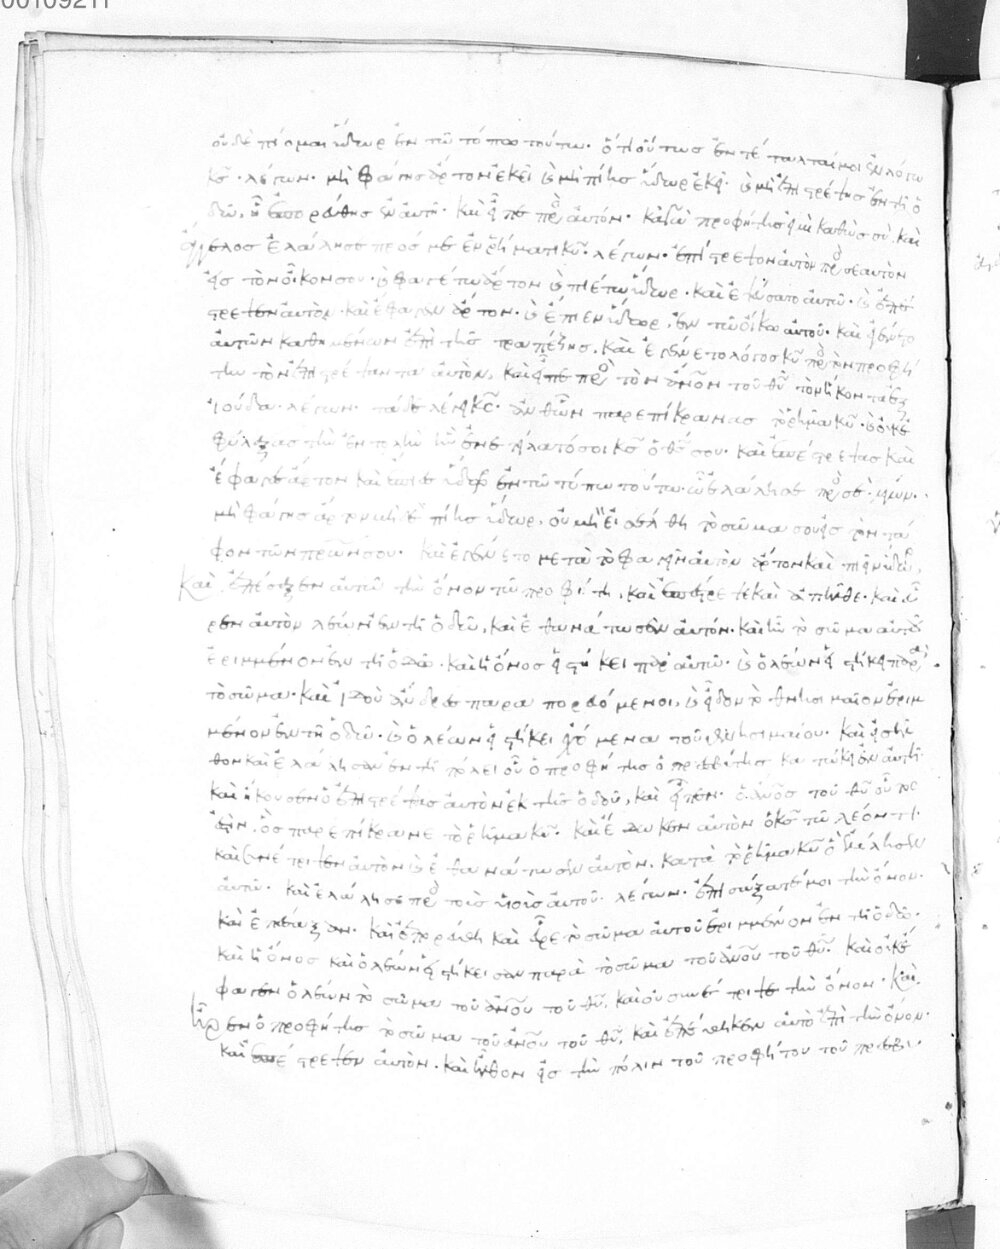 00109211
οὐδὲ πίομαι ὕδωρ ἐν τῶ τόπω τούτω. ὅτι οὕτως ἐντέταλταί μοι ἐν λόγω
κς λέγων. μὴ φάγης ἄρτον ἐκεῖ καὶ μὴ πίης ὕδωρ ἐκεῖ. καὶ μὴ ἐπιστρέψης ἐν τῆ ὁ
δῶ, ἧ ἐπορεύθης ἐν αὐτῆ. καὶ εἶπε πρὸς αὐτόν. κἀγὼ προφήτης εἰμὶ καθὼς σύ. καὶ
ἄγγελος ἐλάλησε πρός με ἐν ῥήματι κυ λέγων. ἐπίστρεψον αὐτὸν πρὸς σεαυτὸν
εἰς τὸν οἶκον σου. καὶ φαγέτω ἄρτον καὶ πιέτω ὕδωρ. καὶ ἐψεύσατο αὐτῶ. καὶ ἐπέ
στρεψεν αὐτὸν. καὶ ἔφαγεν ἄρτον. καὶ ἔπιεν ὕδωρ, ἐν τῶ οἴκω αὐτοῦ. καὶ ἐγένετο
αὐτῶν καθημένων ἐπὶ τῆς τραπέζης, καὶ ἐγένετο λόγος κυ πρὸς τὸν προφή
την τὸν ἐπιστρέψαντα αὐτὸν, καὶ εἶπε πρὸς τὸν ἄνον τοῦ θυ τὸν ἥκοντα ἐξ
ἰούδα. λέγων. τάδε λέγει κς. ἀνθ' ὧν παρεπίκρανας τὸ ῥῆμα κυ. καὶ οὐκ ἐ
φύλαξας τὴν ἐντολὴν ἣν ἐνετείλατό σοι κς ὁ θς σου. καὶ ἐπέστρεψας καὶ
ἔφαγες ἄρτον καὶ ἔπιες ὕδωρ ἐν τῶ τόπω τούτω. ὧ ἐλάλησε πρὸς σὲ λέγων.
μὴ φάγης ἄρτον μηδὲ πίης ὕδωρ, οὐ μὴ εἰσέλθη τὸ σῶμα σου εἰς τὸν τά
φον τῶν πρων σου. καὶ ἐγένετο μετὰ τὸ φαγεῖν αὐτὸν ἄρτον καὶ πιεῖν ὕδωρ,
καὶ ἐπέσαξεν αὐτῶ τὴν ὄνον τῶ προφήτη, καὶ ἐπέστρεψε καὶ ἀπῆλθε. καὶ εὗ
ρεν αὐτὸν λέων ἐν τῆ ὁδῶ, καὶ ἐθανάτωσεν αὐτόν. καὶ ἦν τὸ σῶμα αὐτοῦ
ἐριμμένον ἐν τῆ ὁδῶ. καὶ ἡ ὄνος εἱστήκει παρ' αὐτῶ. καὶ ὁ λέων εἱστήκει παρὰ
τὸ σῶμα. καὶ ἰδοὺ ἄνδρες παραπορευόμενοι, καὶ εἶδον τὸ θνησιμαῖον ἐριμ
μένον ἐν τῆ ὁδῶ. καὶ ὁ λέων εἱστήκει ἐχόμενα τοῦ θνησιμαίου. καὶ εἰσῆλ
θον καὶ ἐλάλησαν ἐν τῆ πόλει οὗ ὁ προφήτης ὁ πρεσβύτης κατώκει ἐν αὐτῆ.
καὶ ἤκουσεν ὁ ἐπιστρέψας αὐτὸν ἐκ τῆς ὁδοῦ, καὶ εἶπεν. ὁ ἄνος τοῦ θυ οὗτός
ἐστιν, ὃς παρεπίκρανε τὸ ῥῆμα κυ. καὶ ἔδωκεν αὐτὸν ὁ κς τῶ λέοντι.
καὶ συνέτριψεν αὐτὸν καὶ ἐθανάτωσεν αὐτὸν, κατὰ τὸ ῥῆμα κυ ὃ ἐλάλησεν
αὐτῶ. καὶ ἐλάλησε πρὸς τοὺς υἱοὺς αὐτοῦ λέγων. ἐπισάξατέ μοι τὴν ὄνον.
καὶ ἐπέσαξαν. καὶ ἐπορεύθη καὶ εὗρε τὸ σῶμα αὐτοῦ ἐριμμένον ἐν τῆ ὁδῶ.
καὶ ἡ ὄνος καὶ ὁ λέων εἱστήκεισαν παρὰ τὸ σῶμα τοῦ ἄνου τοῦ θυ. καὶ οὐκ ἔ
φαγεν ὁ λέων τὸ σῶμα τοῦ ἄνου τοῦ θυ, καὶ οὐ συνέτριψε τὴν ὄνον. καὶ
ἦρεν ὁ προφήτης τὸ σῶμα τοῦ ἄνου τοῦ θυ, καὶ ἐπέθηκεν αὐτὸ ἐπὶ τὴν ὄνον.
καὶ ἐπέστρεψεν αὐτὸν. καὶ ἦλθον εἰς τὴν πόλιν τοῦ προφήτου τοῦ πρεσβυ